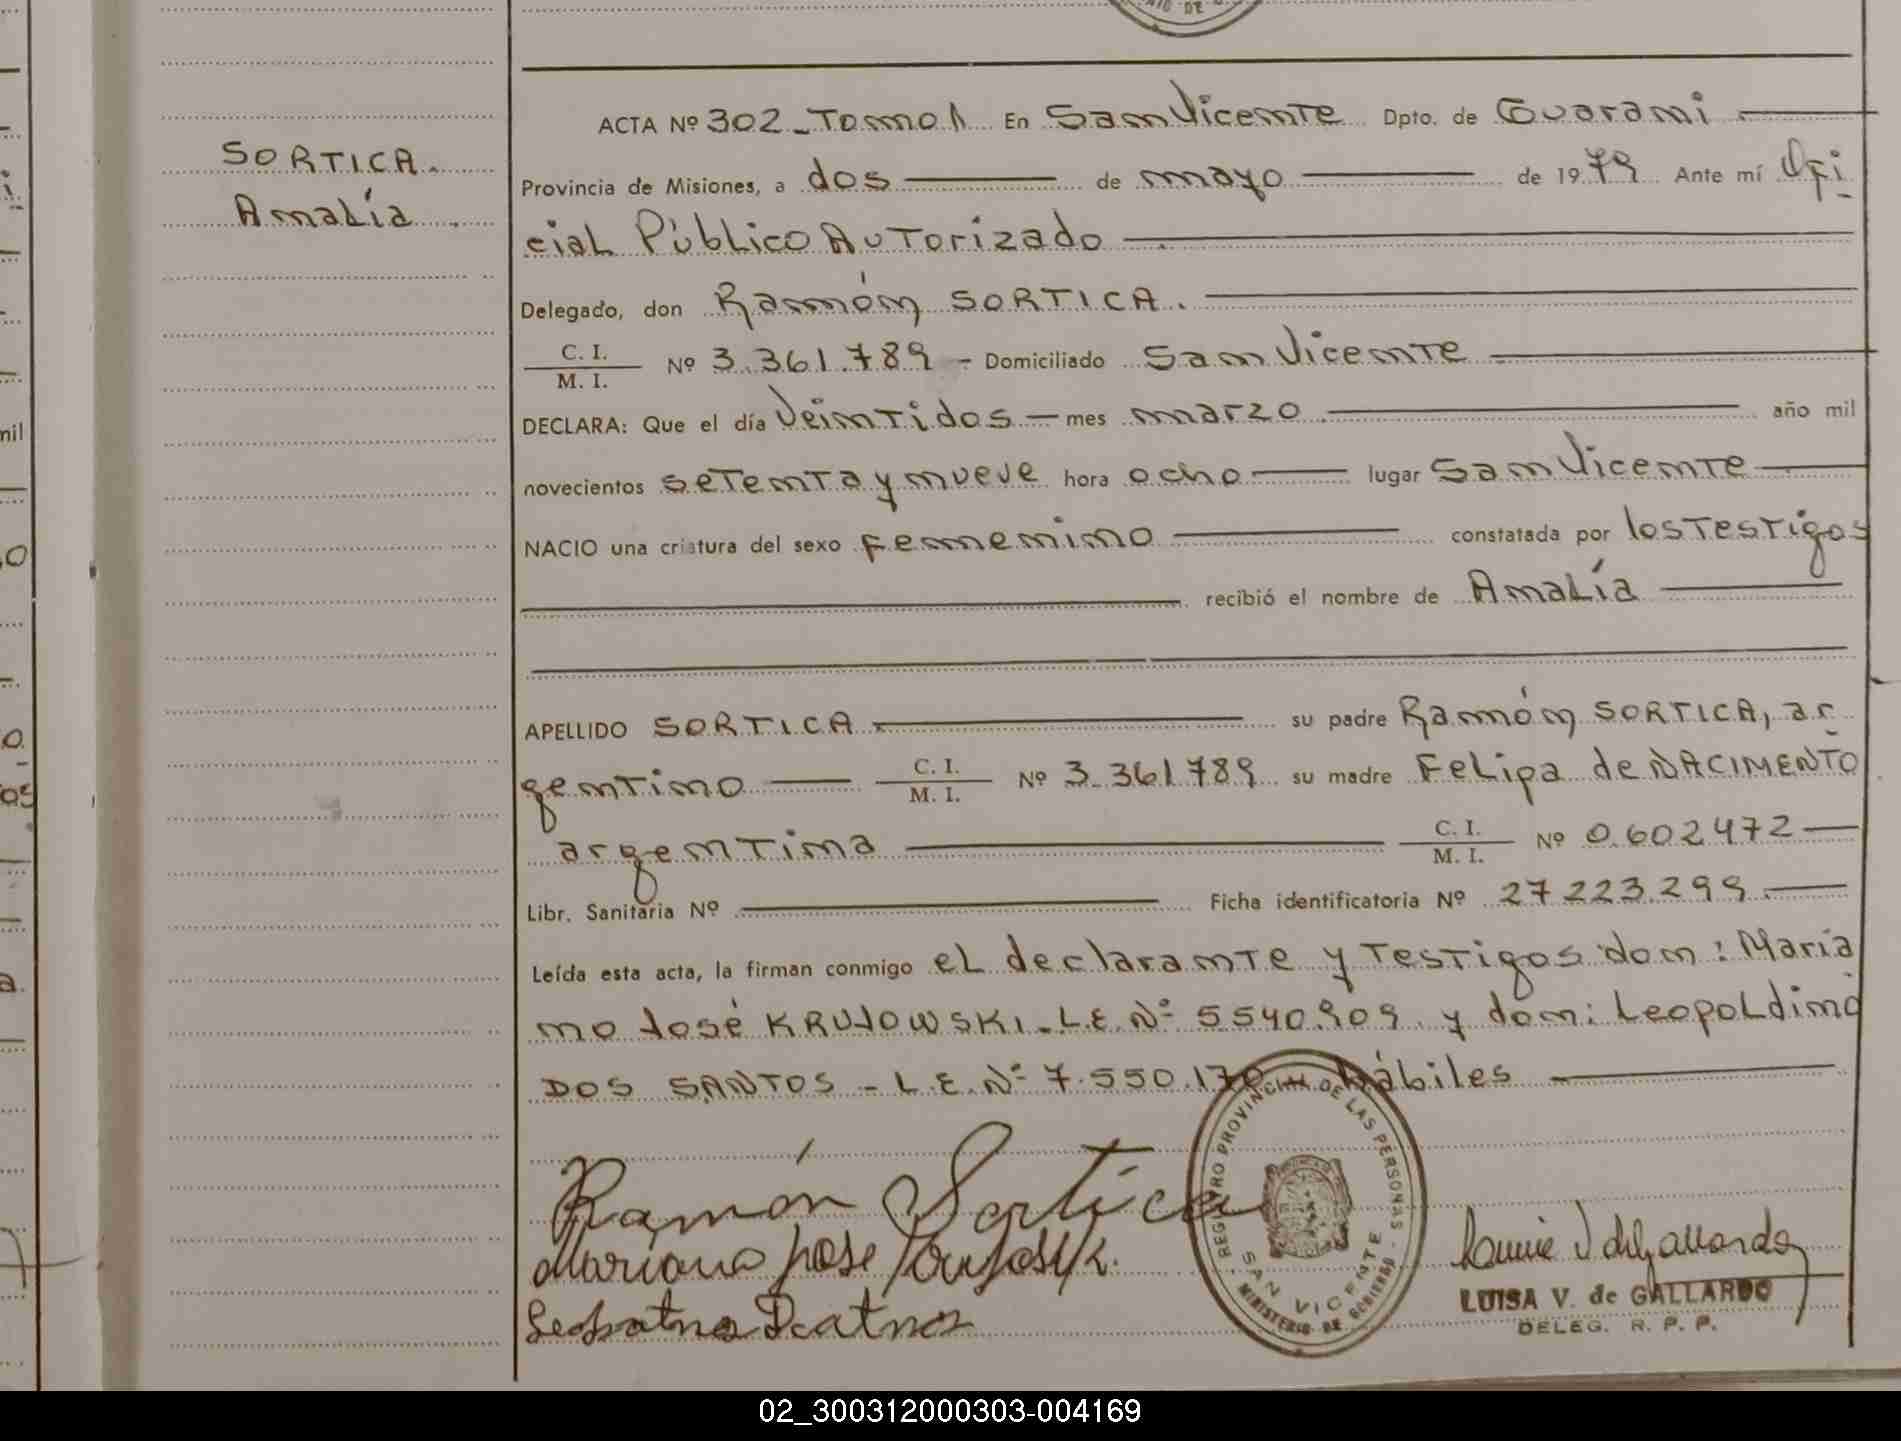 SORTICA.
Amalía
ACTA Nº 302_Tomo 1 En San Vicente Dpto. de Guaraní
Provincia de Misiones, a dos de mayo de 1979 Ante mí Ofi
cial Público Autorizado
Delegado, don Ramón SORTICA.
C. I.
M. I. Nº 3.361.789 - Domiciliado San Vicente
DECLARA: Que el día Veintidos mes marzo año mil
novecientos setenta y nueve hora ocho lugar San Vicente
NACIO una criatura del sexo femenino constatada por los Testigos
recibió el nombre de Amalía
APELLIDO SORTICA su padre Ramón SORTICA, ar
gentino C. I.
M. I. Nº 3.361789 su madre Felipa de NACIMENTO
argentina C. I.
M. I. Nº 0.602472
Libr. Sanitaria Nº Ficha identificatoria Nº 27 223.299
Leída esta acta, la firman conmigo el declarante y Testigos don: Maria
no José KRUJOWSKI. L.E. Nº 5540.909 y don: Leopoldino
DOS SANTOS - L.E. Nº 7.550.170 hábiles
Ramón Sortica
Mariano Jose
REGISTRO PROVINCIAL DE LAS PERSONAS
SAN VICENTE
MINISTERIO DE GOBIERNO
LUISA V. de GALLARDO
DELEG. R. P. P.
02_300312000303-004169